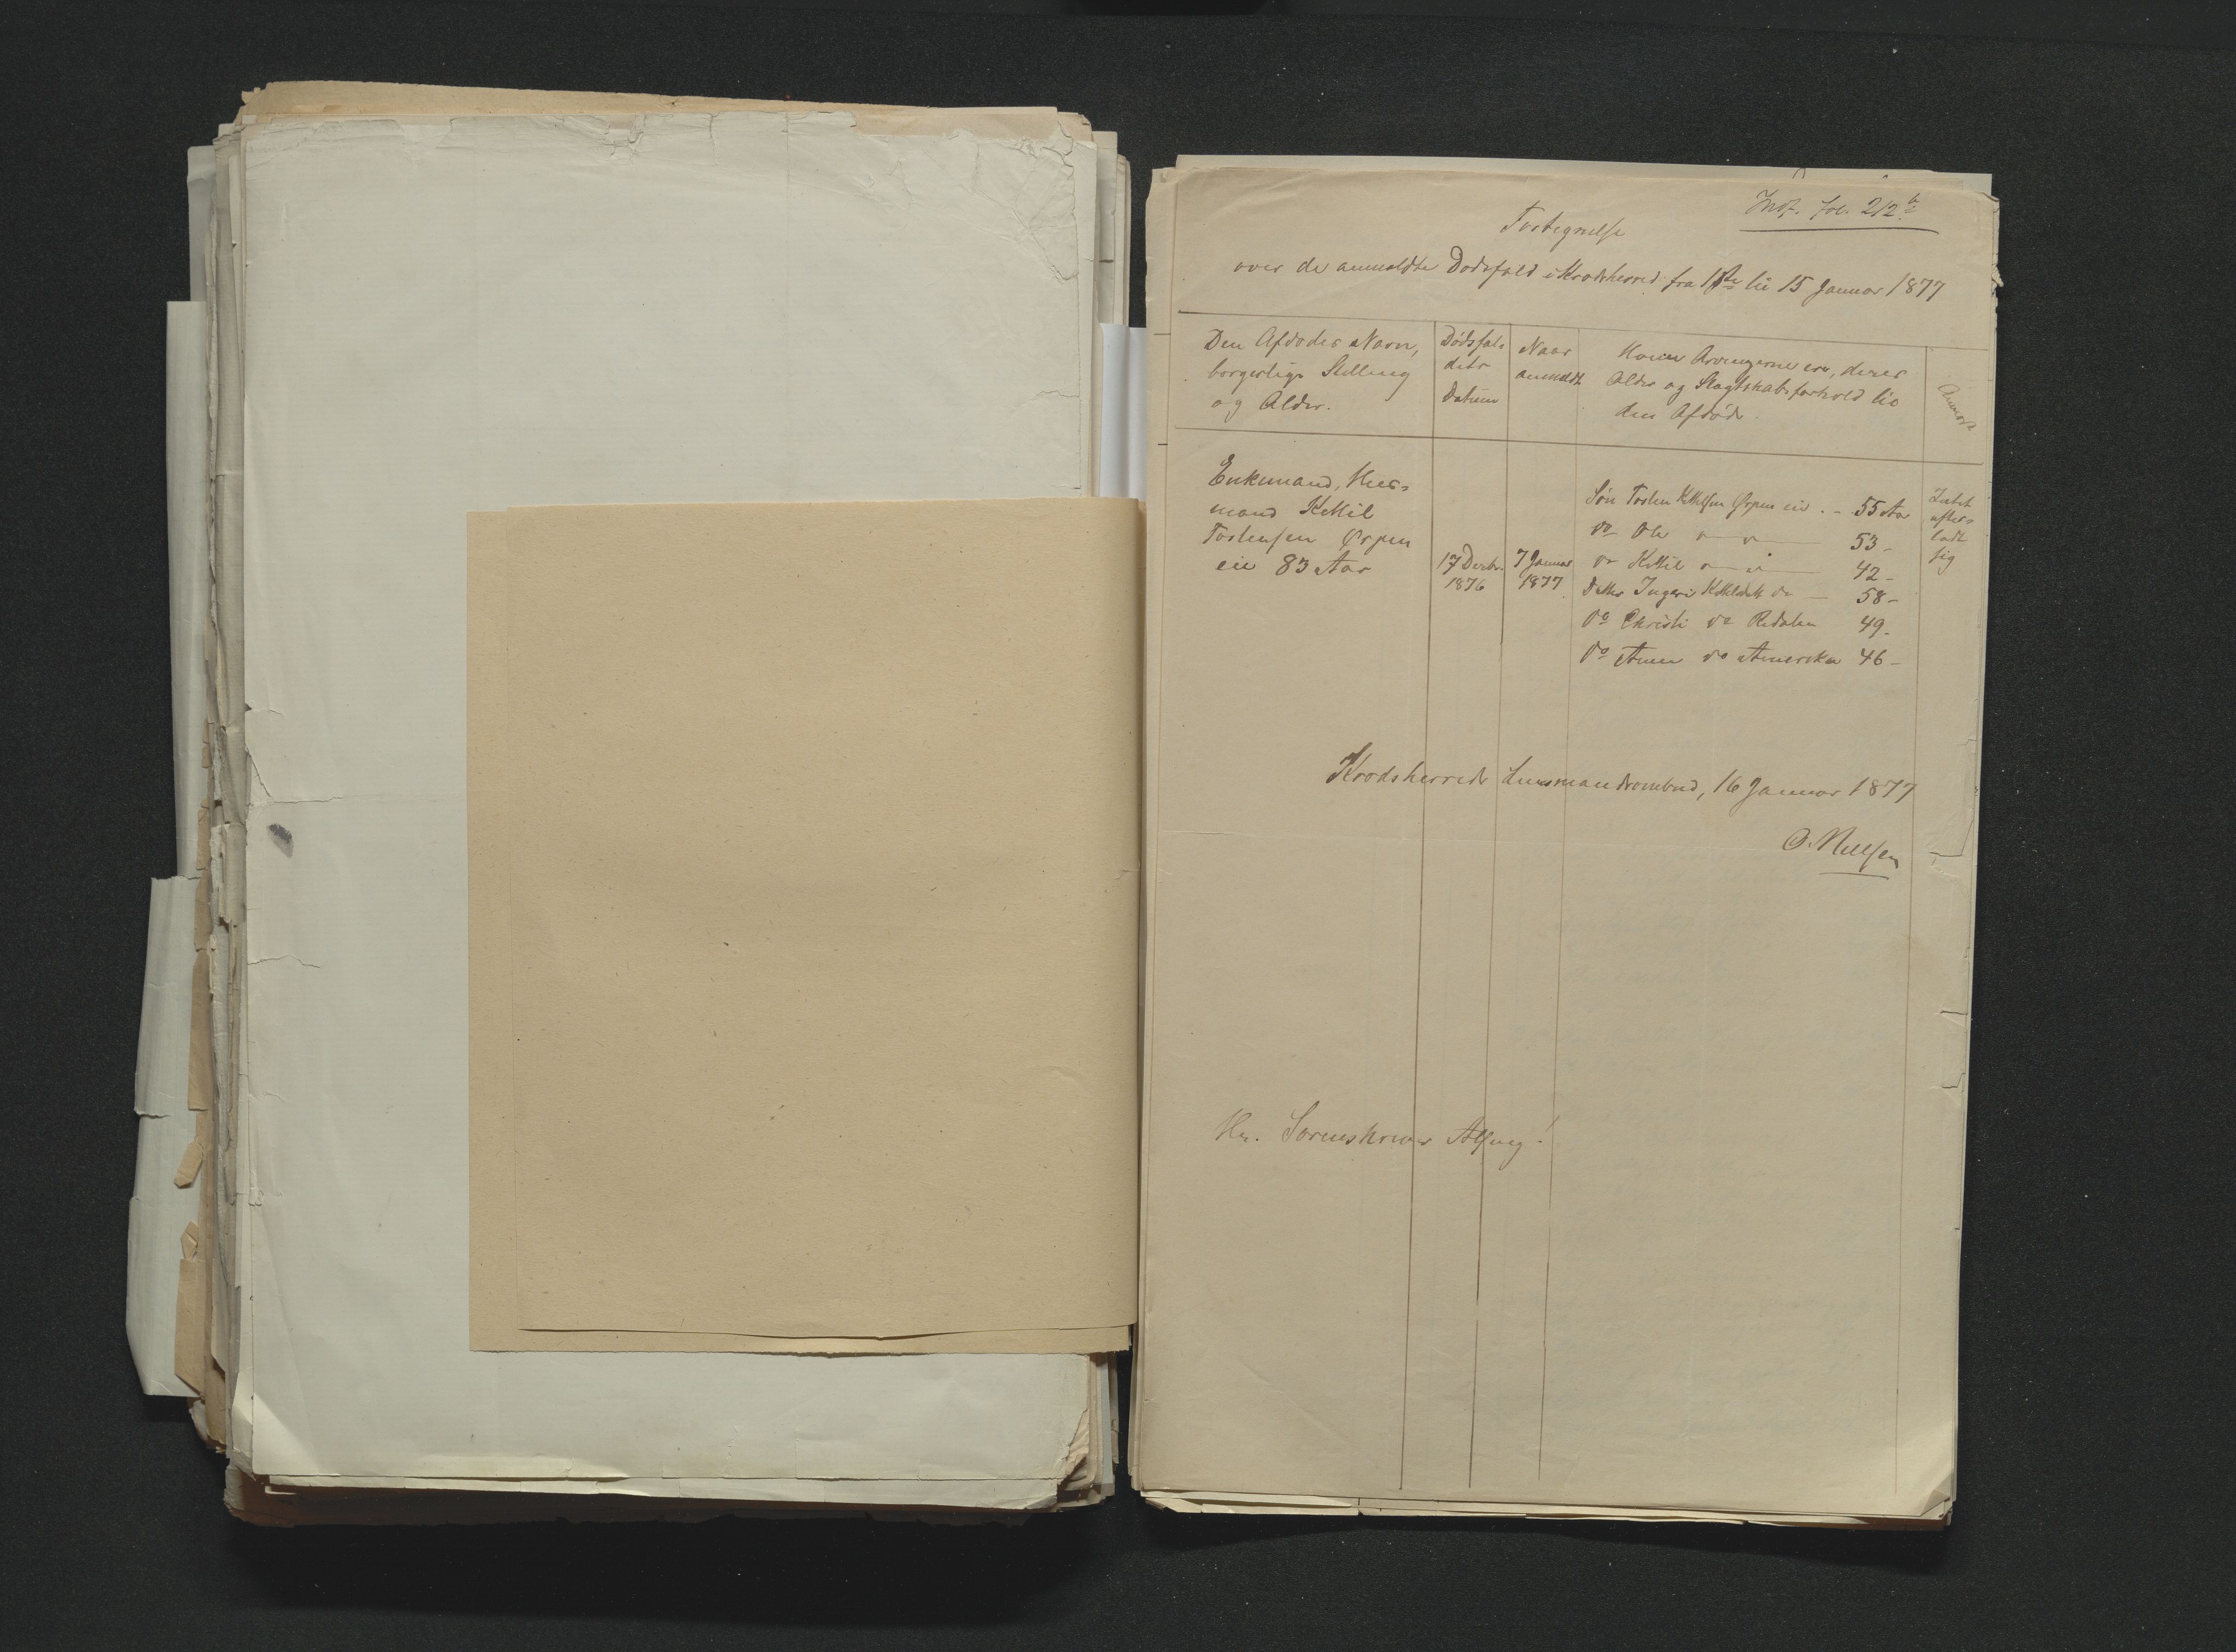 Indf. fol. 212 b
Fortegnelse
over de anmeldte Dødsfald i Krødsherred fra 1ste til 15 Januar 1877
Den Afdødes Navn,
borgerlige Stilling
og Alder.
Dødsfal-
dets
Datum
Naar
anmeldt
Hvem Arvingerne ere, deres
Alder og Slægtskabsforhold til
den Afdøde.
Anmærk
Enkemand, Huus-
mand Kittil
Tostensen Ørpen
eie 83 Aar
17 Decbr.
1876
7 Januar
1877
Søn Tosten Kittilsen Ørpen eie - 55 Aar
do Ole do do 53 -
do Kittil do do 42 -
Datter Ingeri Kittilsdatt do - 58 -
do Christi do Redalen 49 -
do Anne do Amerika 46 -
Intet
efter-
ladt
sig
Krødsherreds Lensmandsombud, 16 Januar 1877
O. Nilsen
Hr. Sorenskriver